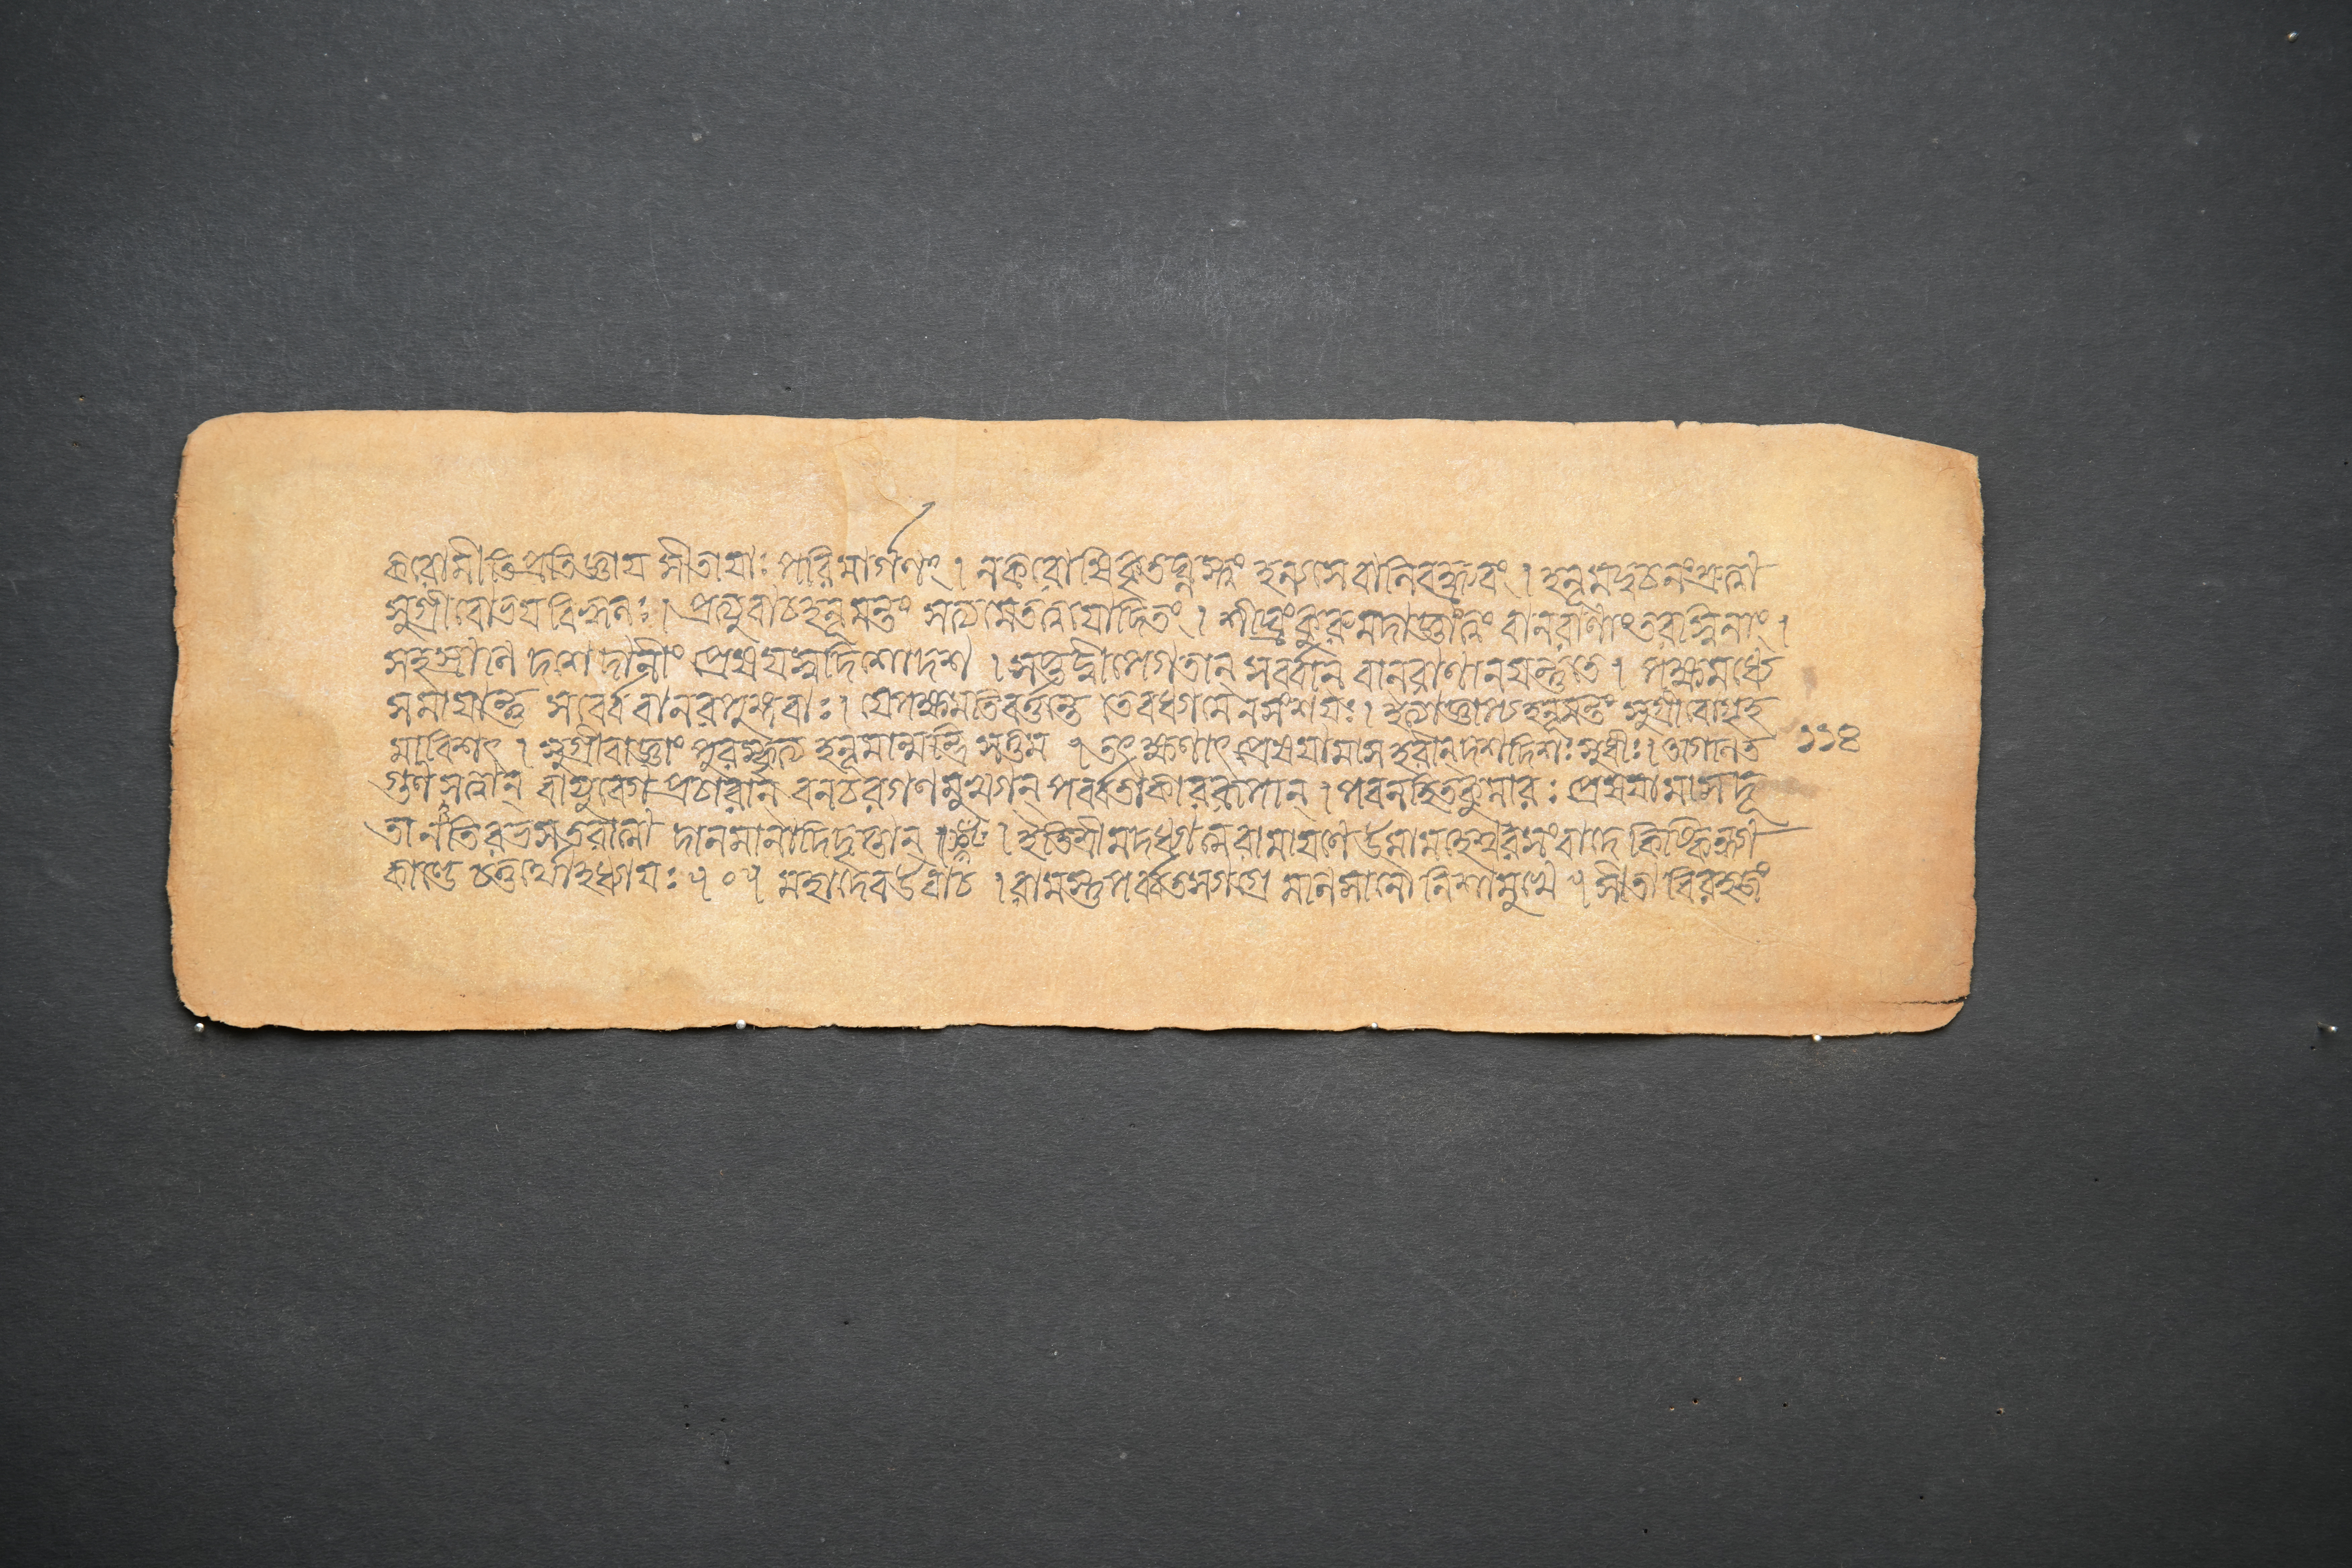 করোমীতি প্রতিজ্ঞায় সীতায়াঃ পরিমার্গণং । ন করোষি কৃতঘ্নস্ত্বং হন্যসে বালিবদ্ধ্রুবং । হনূমদ্বচনং শ্রুত্বা
সুগ্রীবো ভয়বিহ্বলঃ । প্রত্যুবাচ হনূমন্তং সত্যমেতত্ত্বয়োদিতং । শীঘ্রং কুরু মদাজ্ঞাং ত্বং বানরাণাং তরস্বিনাং ।
সহস্রাণি দশেদানীং প্রেষয়স্ব দিশো দশ । সপ্তদ্বীপগতান্ সর্ব্বান্ বানরাণানয়ন্তু তে । পক্ষমধ্যে
সমায়ান্তু সর্ব্বে বানরপুঙ্গবাঃ । যে পক্ষমতিবর্ত্তন্তে তে বধ্যা মে ন সংশয়ঃ । ইত্যাজ্ঞাপ্য হনূমন্তং সুগ্রীবো গৃহ
মাবিশৎ । সুগ্রীবাজ্ঞাং পুরস্কৃত্য হনূমান্মন্ত্রিসত্তম । তৎক্ষণাৎ প্রেষয়ামাস হরীন্ দশ দিশঃ সুধীঃ । অগণিত ১১৪
গুণসত্ত্বান্ বায়ুবেগপ্রচারান্ বনচরগণমুখ্যান্ পর্ব্বতাকাররূপান্ । পবনহিতকুমারঃ প্রেষয়ামাস দূ
তানতিরভসতরাত্মা দানমানাদিতৃপ্তান্ । ইতি শ্রীমদধ্যাত্মরামায়ণে উমামহেশ্বরসংবাদে কিষ্কিন্ধ্যা
কাণ্ডে চতুর্থোঽধ্যায়ঃ ॥ ০ ॥ মহাদেব উবাচ । রামস্তু পর্ব্বতস্যাগ্রে মণিসানৌ নিশামুখে । সীতাবিরহজং